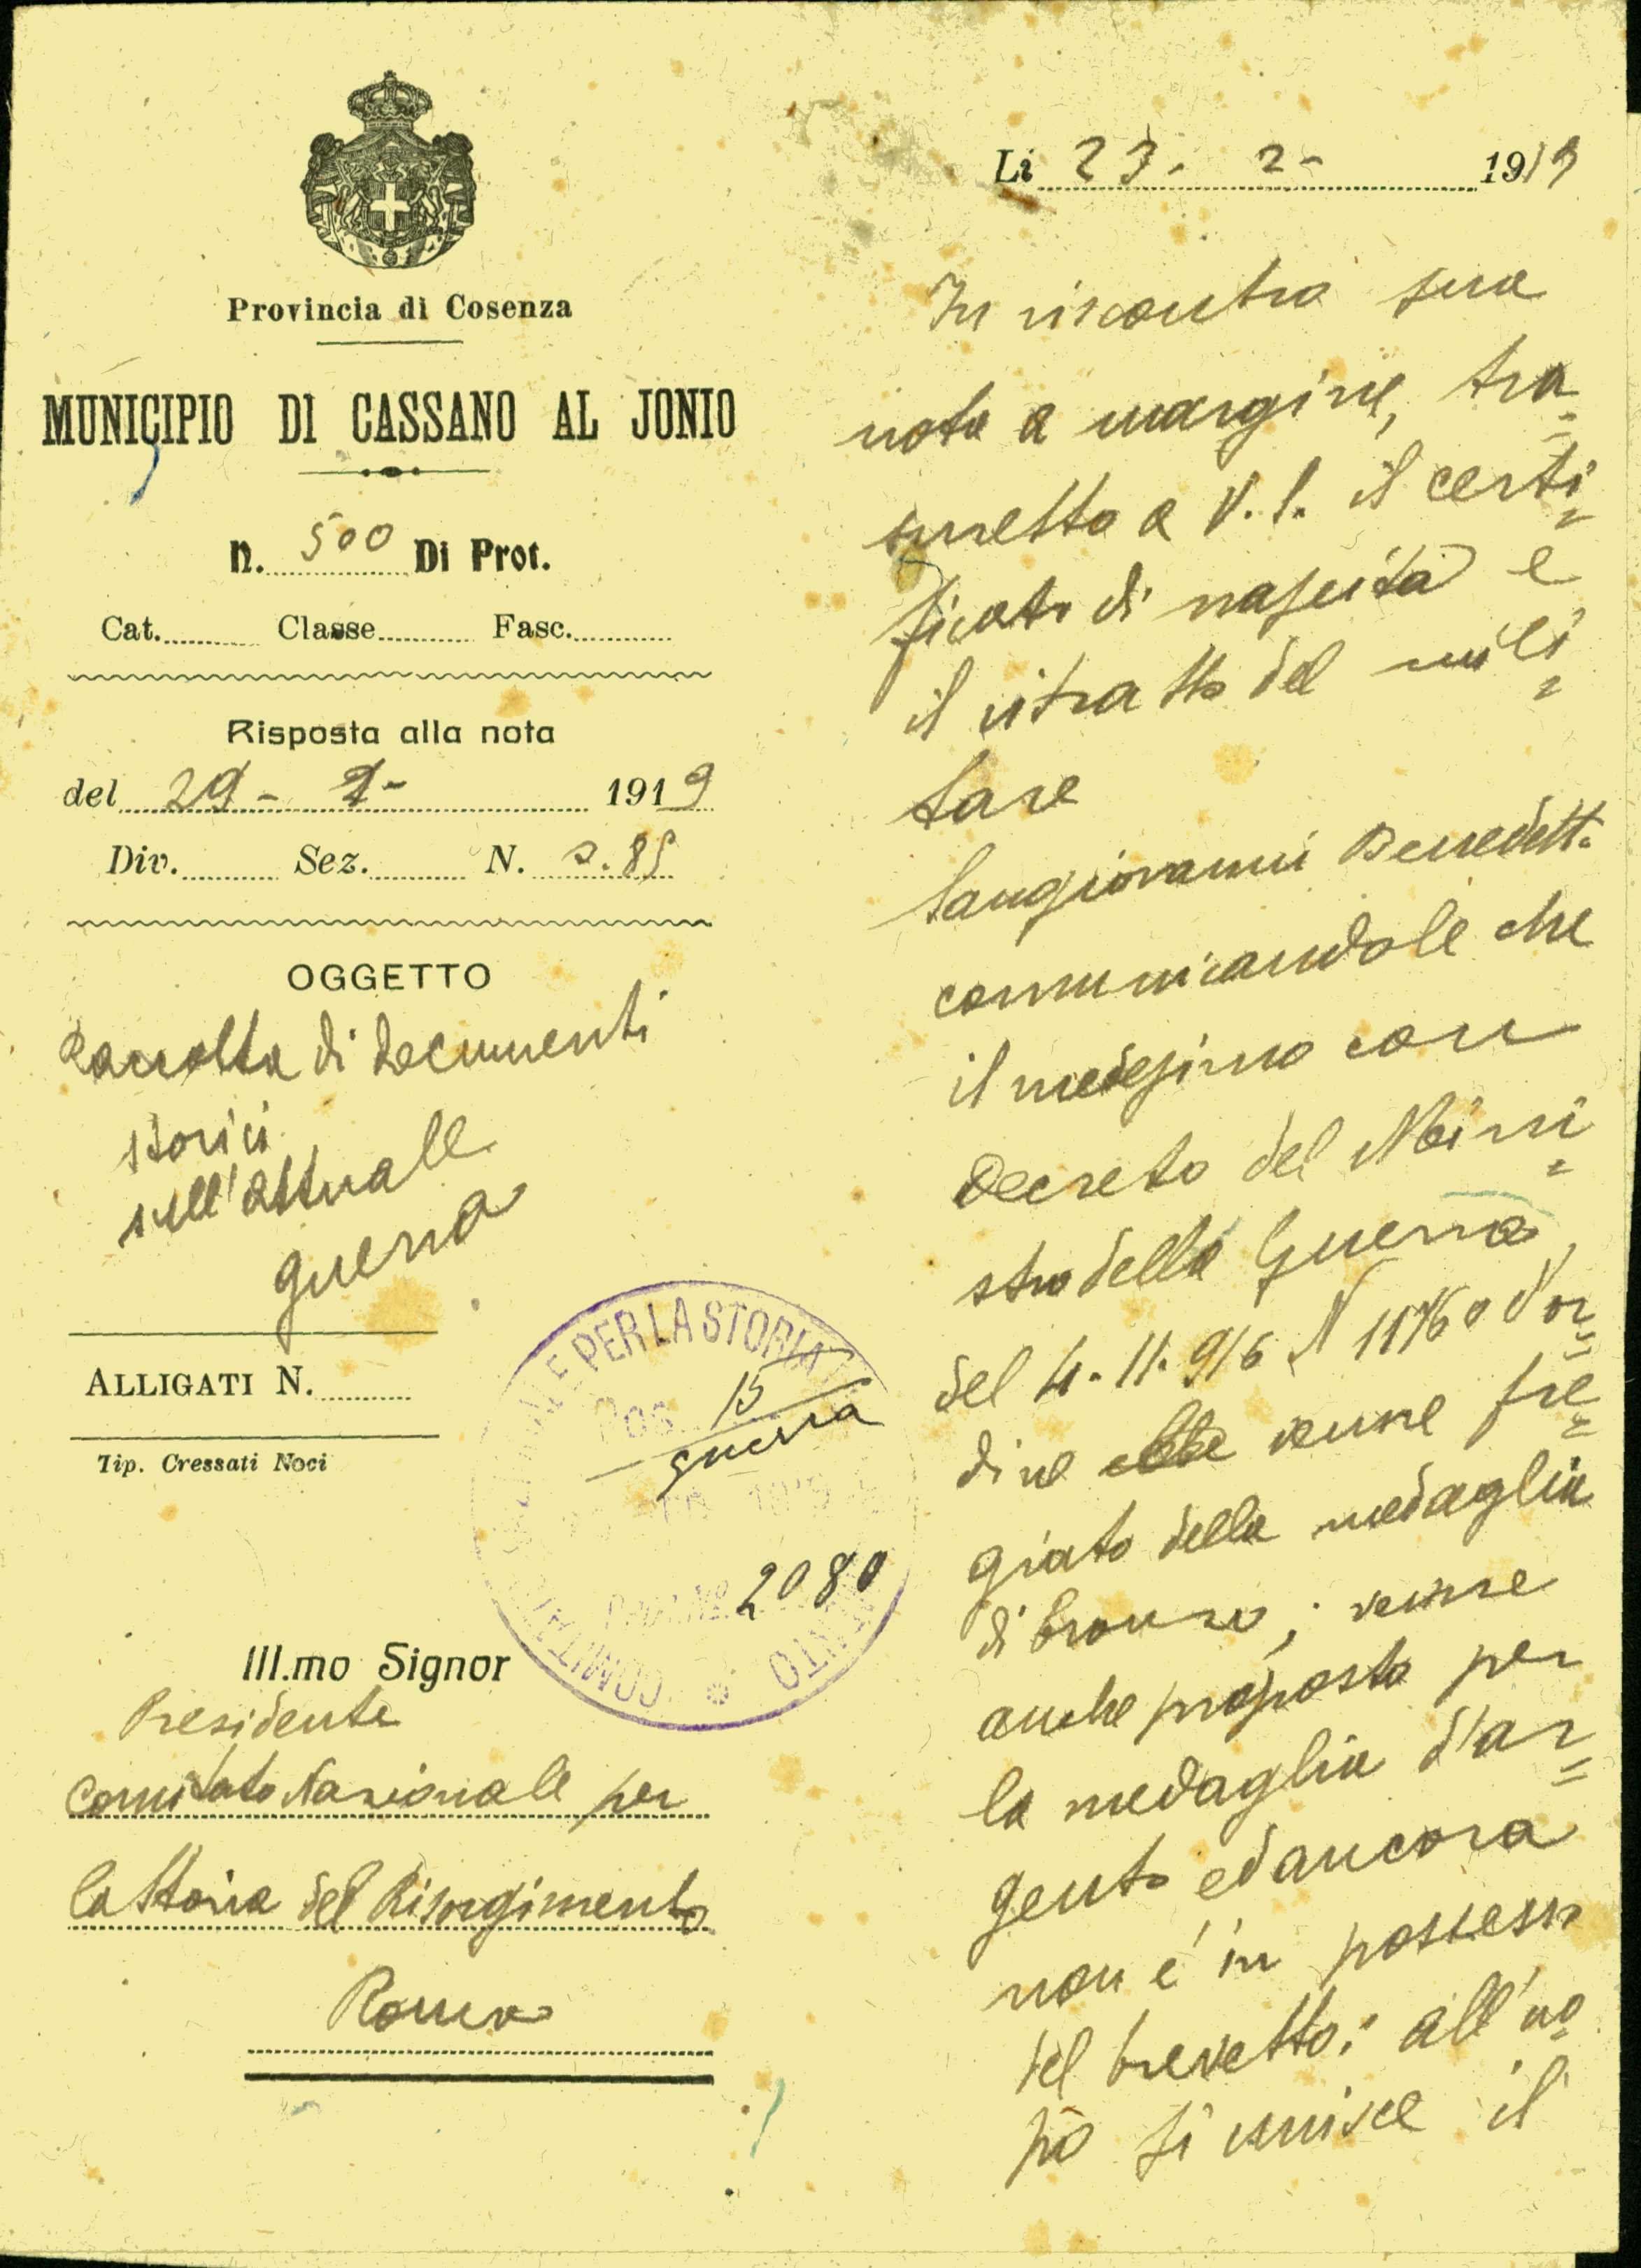 Provincia di Cosenza
MUNICIPIO DI CASSANO AL JONIO
N. 500 Di Prot.
Cat. Classe Fasc.
Risposta alla nota
del 29- 1- 1919
Div. Sez. N. 2.85
OGGETTO
Raccolta di documenti
storici
sull'attuale
guerra
ALLIGATI N.
Tip. Cressati Noci
PER LA STORIA
Pos. 15
guerra
1919
Prot. No 2080
COMITATO
Ill.mo Signor
Presidente
Comitato Nazionale per
la Storia del Risorgimento
Roma
Li 23. 2- 1919
In riscontro sua
nota a margine, tra=
smetto a V.S. il certi=
ficato di nascita e
il ritratto del mili=
tare
Sangiovanni Benedetto
comunicandole che
il medesimo con
Decreto del Mini=
stro della Guerra,
del 4.11.916 N 11760 d'or=
dine venne fre=
giato della medaglia
di bronzo; venne
anche proposto per
la medaglia d'ar=
gento ed ancora
non è in possesso
del brevetto: all'uo=
po si unisce il